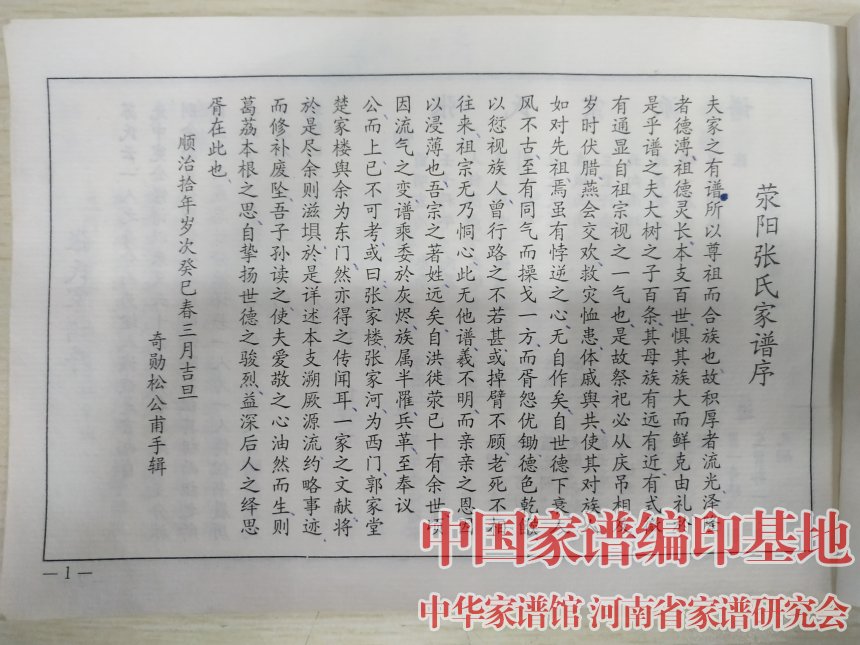 荥阳张氏家谱序
夫家之有谱所以尊祖而合族也故积厚者流光泽
者德溥祖德灵长本支百世惧其族大而鲜克由礼
是乎谱之夫大树之子百条其母族有远有近有式
有通显自祖宗视之一气也是故祭祀必从庆吊相
岁时伏腊燕会交欢救灾恤患体戚舆共使其对族
如对先祖焉虽有悖逆之心无自作矣自世德下衰
风不古至有同气而操戈一方而胥怨优锄德色乾
以愆视族人曾行路之不若甚或掉臂不顾老死不相
往来祖宗无乃恫心此无他谱羲不明而亲亲之恩
以浸薄也吾宗之著姓远矣自洪徙荥已十有余世
因流气之变谱乘委於灰烬族属半罹兵革至奉议
公而上已不可考或曰张家楼张家河为西门郭家堂
楚家楼舆余为东门然亦得之传闻耳一家之文献将
於是尽余则滋惧於是详述本支溯厥源流约略事迹
而修补废坠吾子孙读之使夫爱敬之心油然而生则
葛荔本根之思自挚扬世德之骏烈益深后人之绎思
胥在此也
顺治拾年岁次癸巳春三月吉旦
奇勋松公甫手辑
— 1 —
中国家谱编印基地
中华家谱馆 河南省家谱研究会